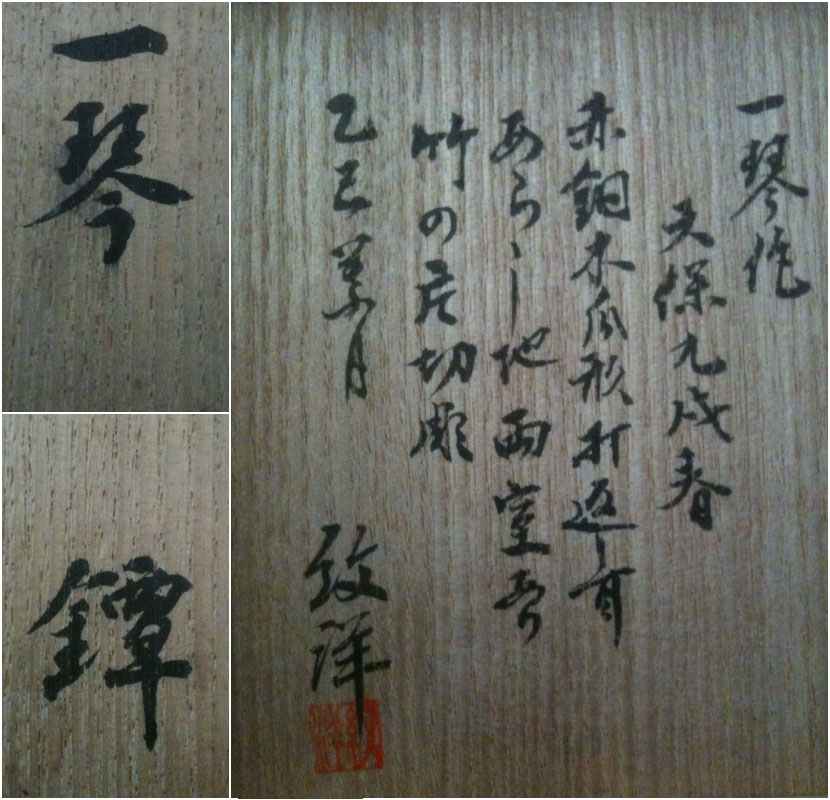 一琴
鐔
一琴作
天保九戌春
赤銅木瓜形打返し耳
あらし地両笠
竹の居切彫
乙巳葉月